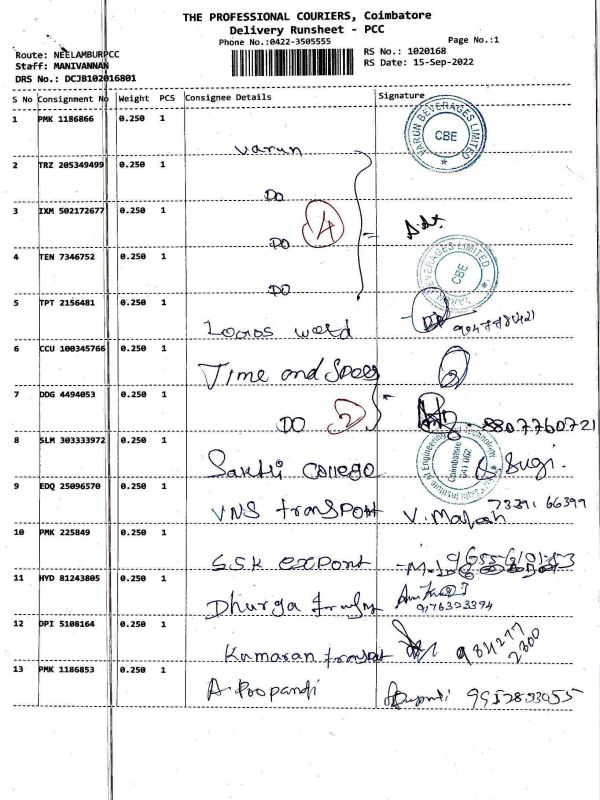 THE PROFESSIONAL COURIERS, Coimbatore
Delivery Runsheet - PCC
Phone No.:0422-3505555
Page No.:1
Route: NEELAMBURPCC
RS No.: 1020168
Staff: MANIVANNAN
RS Date: 15-Sep-2022
DRS No.: DCJB102016801
S No Consignment No Weight PCS Consignee Details Signature
1 PMK 1186866 0.250 1 Varun
VARUN BEVERAGES LIMITED
CBE
2 TRZ 205349499 0.250 1 DO
3 IXM 502172677 0.250 1 DO
4
4 TEN 7346752 0.250 1 DO
BEVERAGES LIMITED
CBE
5 TPT 2156481 0.250 1 Logos world
6 CCU 100345766 0.250 1 Time and
7 DDG 4494053 0.250 1 DO
2
8807760721
8 SLM 303333972 0.250 1 Sakthi College
Sugi.
Coimbatore
641 062
9 EDQ 25096570 0.250 1 VNS transport
V.
73391 66399
10 PMK 225849 0.250 1 SSK export
11 HYD 81243805 0.250 1 Dhurga
9176323394
12 DPI 5108164 0.250 1 Kumaran transport
13 PMK 1186853 0.250 1 A. Poopandi